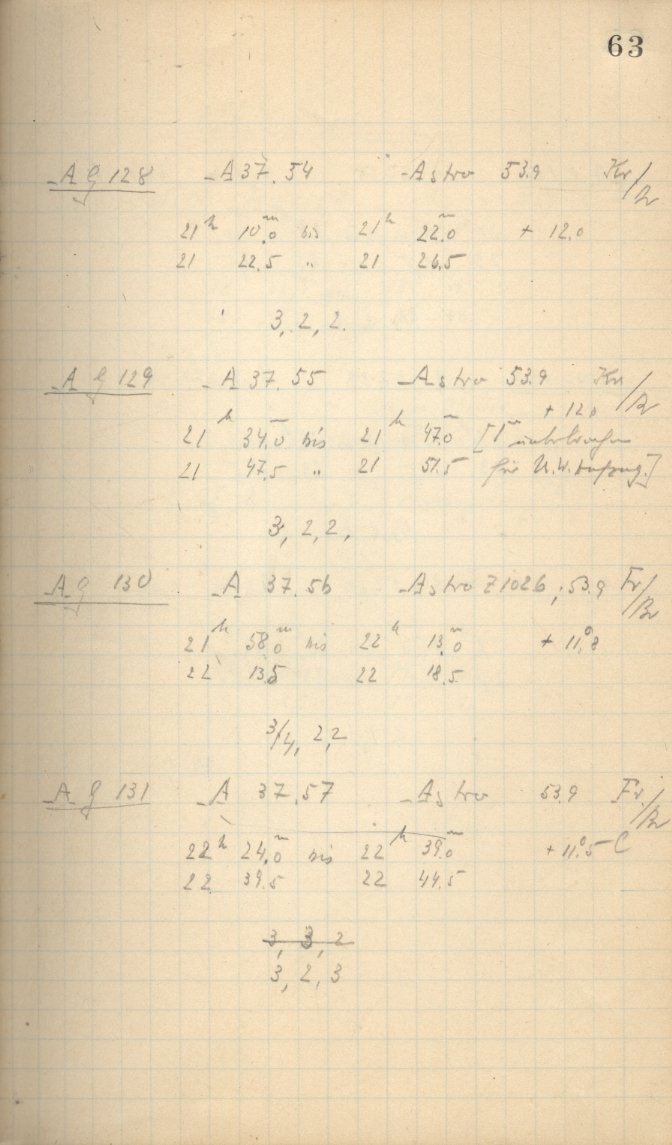 63
AG 128 A 37.54 Astro 53.9 Kr/Br
21h 10m.0 bis 21h 22m.0 + 12.0
21 22.5 " 21 26.5
3, 2, 2.
AG 129 A 37.55 Astro 53.9 Kr/Br
+ 12.0
21h 34m.0 bis 21h 47m.0 [1m unterbrochen
21 47.5 " 21 51.5 für U.W. Aufzug.]
3, 2, 2,
AG 130 A 37.56 Astro Z 1026; 53.9 Fr/Br
21h 58m.0 bis 22h 13m.0 + 11°.8
22 13.5 22 18.5
3/4, 2, 2
AG 131 A 37.57 Astro 53.9 Fr/Br
22h 24m.0 bis 22h 39m.0 + 11°.5 C
22 39.5 22 44.5
3, 3, 2
3, 2, 3